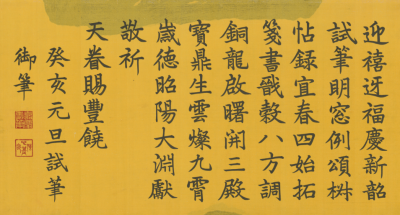 迎禧迓福慶新韶
試筆明窓例頌椒
帖録宜春四始拓
箋書戩榖八方調
銅龍啟曙開三殿
寶鼎生雲燦九霄
歲德昭陽大淵獻
敬祈
天眷賜豐饒
癸亥元旦試筆
御筆